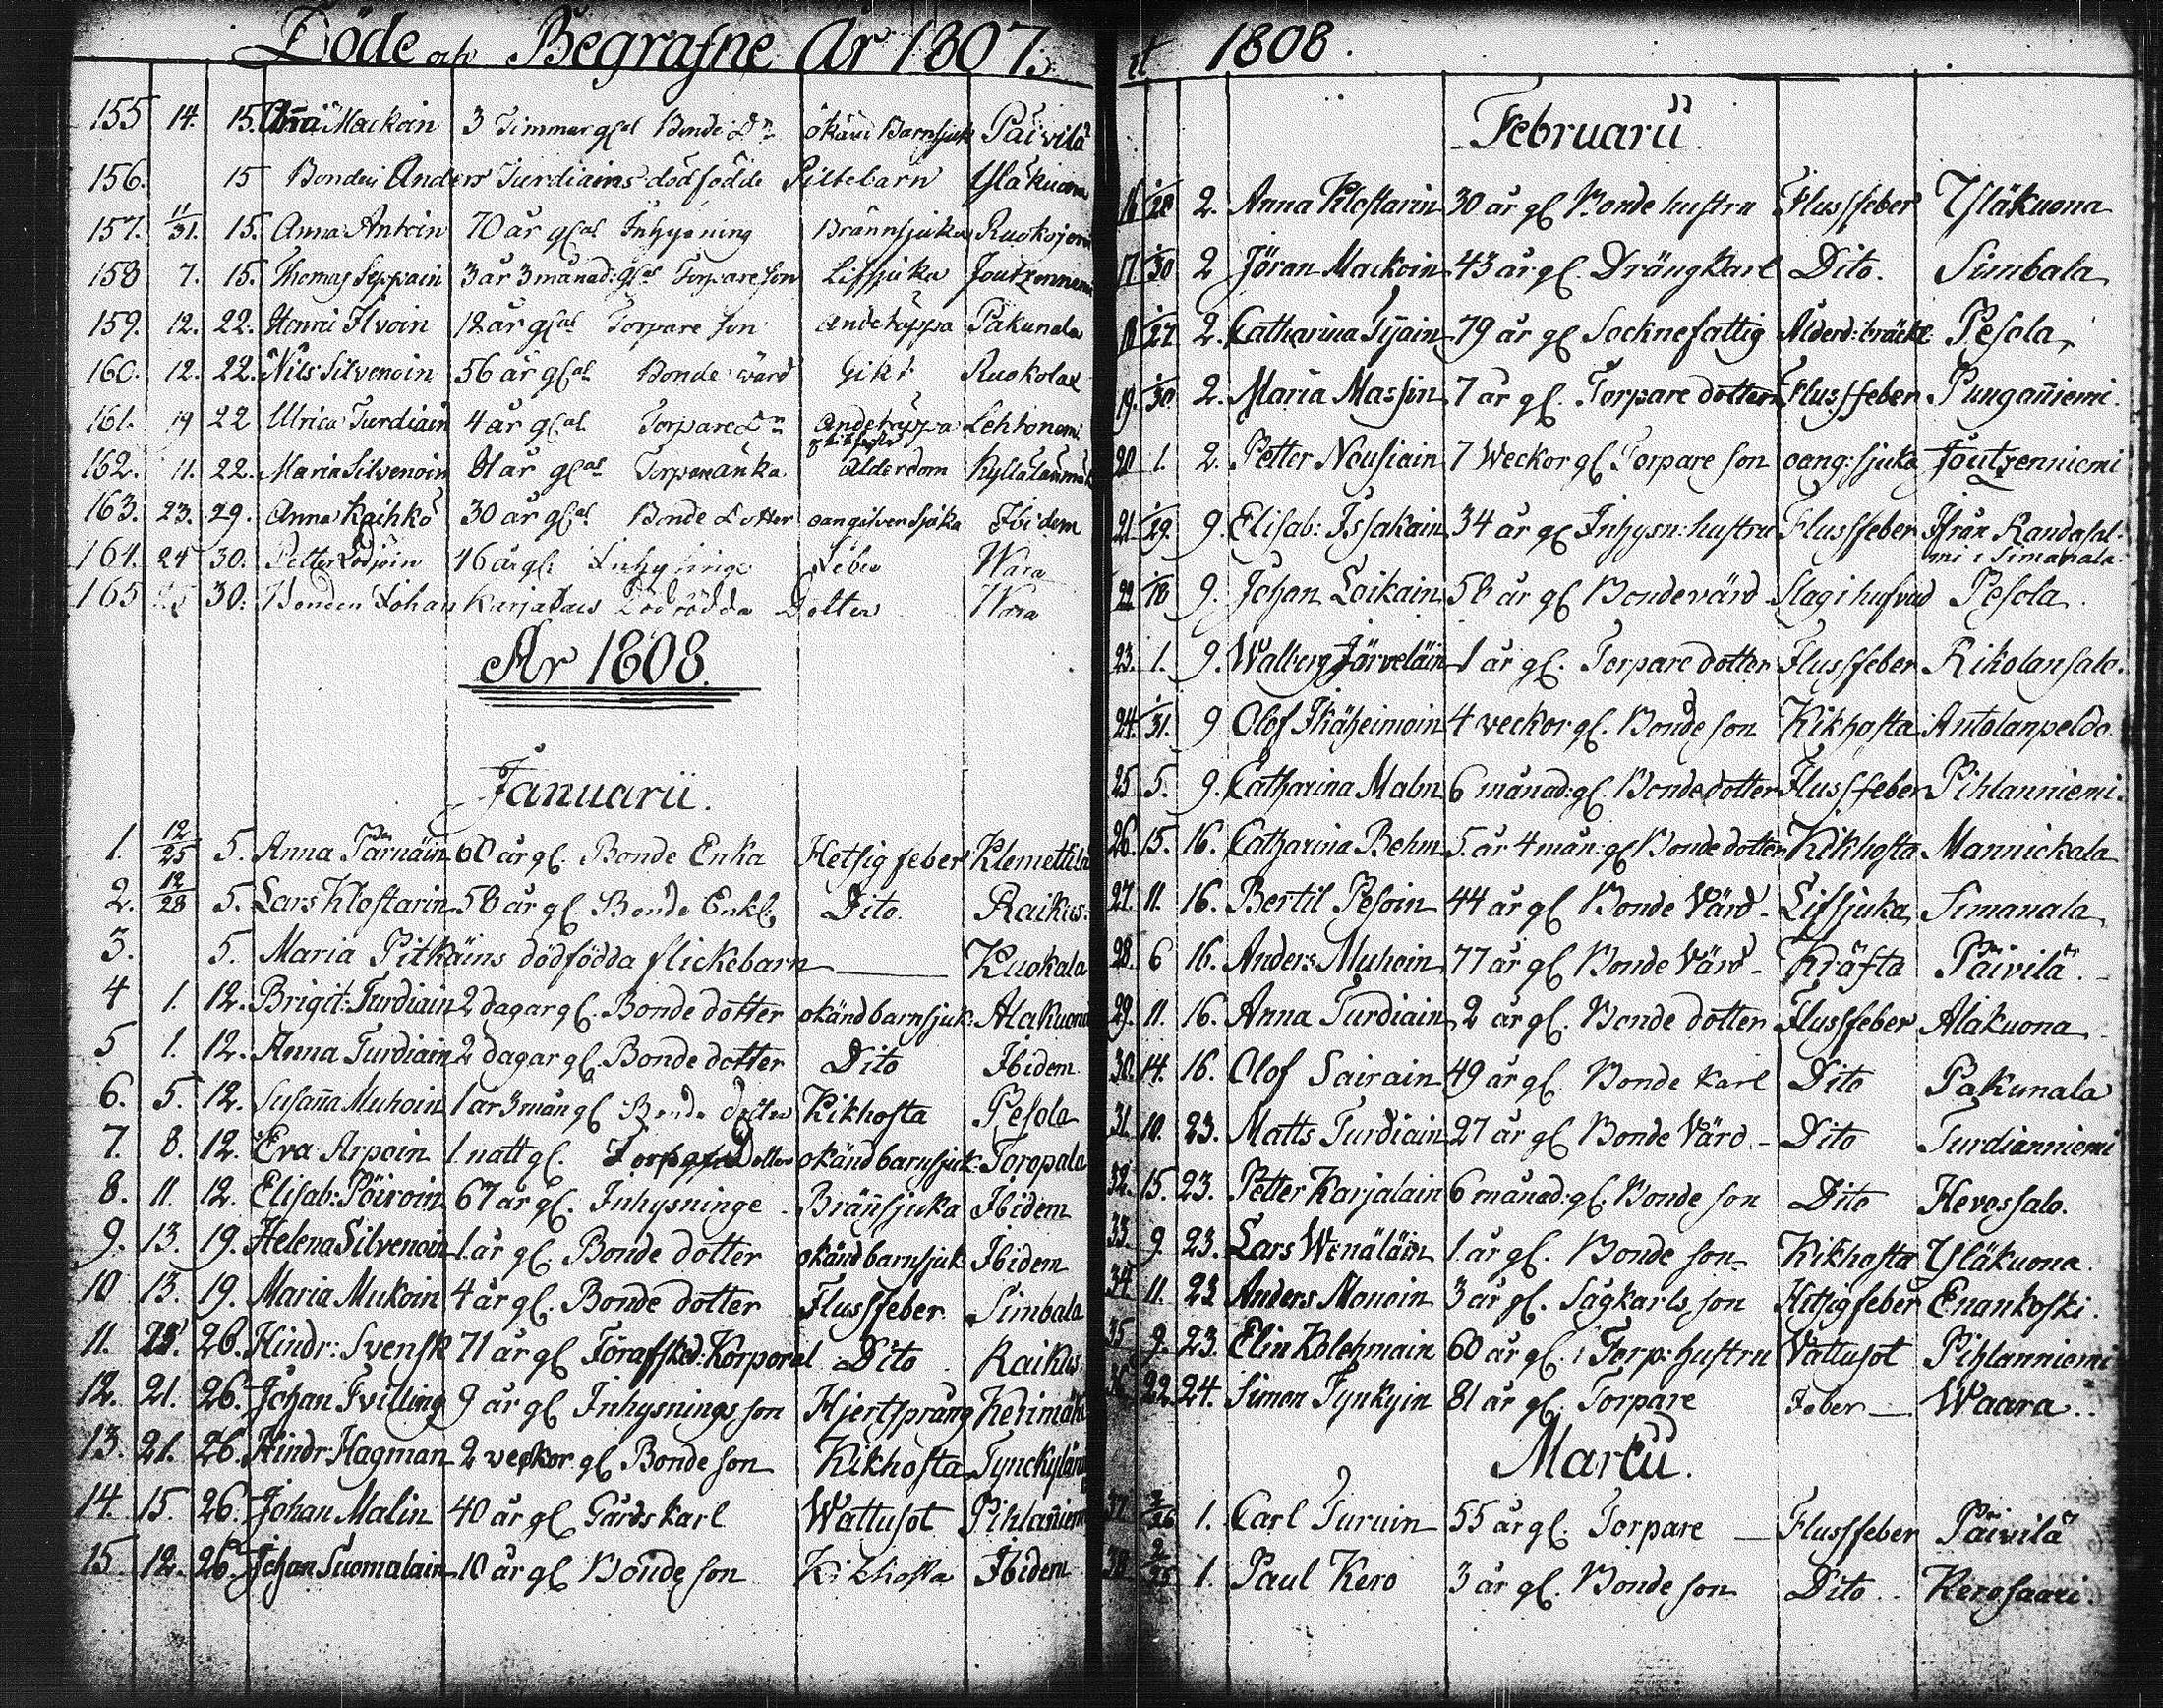 Döde och Begrafne År 1807.
155 14. 15. Anna Mackoin 3 Timmar gl. Bonde Dr okänd Barnsjuk Päivilä
156. 15 Bonden Anders Turdiains dödfödde Piltebarn Yläkuona
157. 11/31. 15. Anna Antoin 70 år gl. Inhysning Brännsjuka Ruokojervi
158 7. 15. Thomas Seppäin 3 år 3 månad: gl. Torpare son Lifsjuka Joutzenniemi
159. 12. 22. Henric Ilvoin 12 år gl. Torpare son andetäppa Pakunala
160. 12. 22. Nils Silvenoin 56 år gl. Bonde värd Gikt Ruokolax
161. 19 22 Ulrica Turdiain 4 år gl. Torpare Dr andetäppa Lehtoniemi
162. 11. 22. Maria Silvenoin 81 år gl. Torpare änka ålderdom Kyllälänmäki
163. 23. 29. Anna Kaihko 30 år gl. Bonde dotter oangifven sjuka Ibidem
164. 24 30. Petter Lodjoin 46 år gl. Inhysinge Feber Wara
165 30. Bonden Johan Karjalais Dödfödda Dotter Wara
År 1808.
Januarii.
1. 12/25 5. Anna Parnäin 60 år gl. Bonde Enka Hetsig feber Klemettila
2. 12/28 5. Lars Klostarin 58 år gl. Bonde Enkl. Dito. Raikus.
3. 5. Maria Pitkäins dödfödda flickebarn Kuokala
4 1. 12. Brigit: Turdiain 2 dagar gl. Bonde dotter okänd barnsjuk. Alakuona
5 1. 12. Anna Turdiain 2 dagar gl. Bonde dotter Dito Ibidem
6. 5. 12. Susanna Muhoin 1 år 3 mån gl. Bonde dotter Kikhosta Pesola
7. 8. 12. Eva Arpoin 1 natt gl. Torpare Dotter okänd barnsjuk: Toropala
8. 11. 12. Elisab: Päivoin 67 år gl. Inhysninge Brännsjuka Ibidem
9. 13. 19. Helena Silvenoin 1. år gl. Bonde dotter okänd barnsjuk Ibidem
10 13. 19. Maria Mukoin 4 år gl. Bonde dotter Flussfeber Simbala
11. 23. 26. Hindr: Svensk 71 år gl. Förafsked: Korporal Dito Raikus.
12. 21. 26. Johan Tvilling 9 år gl. Inhysnings son Hjertsprång Kerimäki
13. 21. 26. Hindr: Hagman 2 veckor gl. Bonde son Kikhosta Tynckylänn
14. 15. 26. Johan Malin 40 år gl. Gårdskarl Wattusot Pihlanniemi
15 12. 26. Johan Suomalain 10 år gl. Bonde son Kikhosta Ibidem
et 1808.
Februarii.
16 1/28 2. Anna Klostarin 30 år gl. Bonde hustru Flussfeber Yläkuona
17. 1/30 2 Jöran Mackoin 43 år gl. Drängkarl Dito. Simbala
18 1/27 2. Catharina Tijain 79 år gl. Socknefattig Ålderd: bräckl: Pesola
19. 1/30 2. Maria Massin 7 år gl. Torpare dotter Flussfeber Punganniemi.
20 1. 2. Petter Nousiain 7 Weckor gl. Torpare son oang: sjuka Joutzenniemi
21. 1/29. 9. Elisab: Issakain 34 år gl. Inhysn: hustru Flussfeber Ifrån Randasal-
mi i Simanala
22. 1/18 9. Johan Laikain 58 år gl. Bondevärd Slag i hufvud Pesola.
23. 1. 9. Walberg Järveläin 1 år gl. Torpare dotter Flussfeber Rikolansalo.
24. 1/31. 9 Olof Ikäheimoin 4 veckor gl. Bonde son Kikhosta Antolanpeldo.
25 5. 9. Catharina Malm 6 månad: gl. Bonde dotter Flussfeber Pihlanniemi.
26. 15. 16. Catharina Behm 5. år 4 mån: gl. Bonde dotter Kikhosta Mannickala
27. 11. 16. Bertil Pesoin 44 år gl. Bonde Värd Lifsjuka Simanala
28. 6 16. Anders Muhoin 77 år gl. Bonde Värd Kräfta Päivilä.
29. 11. 16. Anna Turdiain 2 år gl. Bonde dotter Flussfeber Alakuona
30. 14. 16. Olof Sairain 49 år gl. Bonde karl Dito Pakunala
31. 10. 23. Matts Turdiain 27 år gl. Bonde Värd Dito Turdianniemi
32. 15. 23. Petter Karjalain 6 månad: gl. Bonde son Dito Hevossalo.
33. 9. 23. Lars Wenäläin 1. år gl. Bonde son Kikhosta Yläkuona.
34 11. 23 Anders Monoin 3 år gl. Sågkarls son Hitsigfeber Enankoski.
35 9. 23. Elin Kolehmain 60 år gl. Torp: hustru Vattusot Pihlanniemi
36. 22. 24. Simon Tynkyin 81 år gl. Torpare Feber Waara.
Martii.
37 2/26 1. Carl Turuin 55 år gl. Torpare Flussfeber Päivilä
38. 2/25 1. Paul Kero 3 år gl. Bonde son Dito Kerosaari.